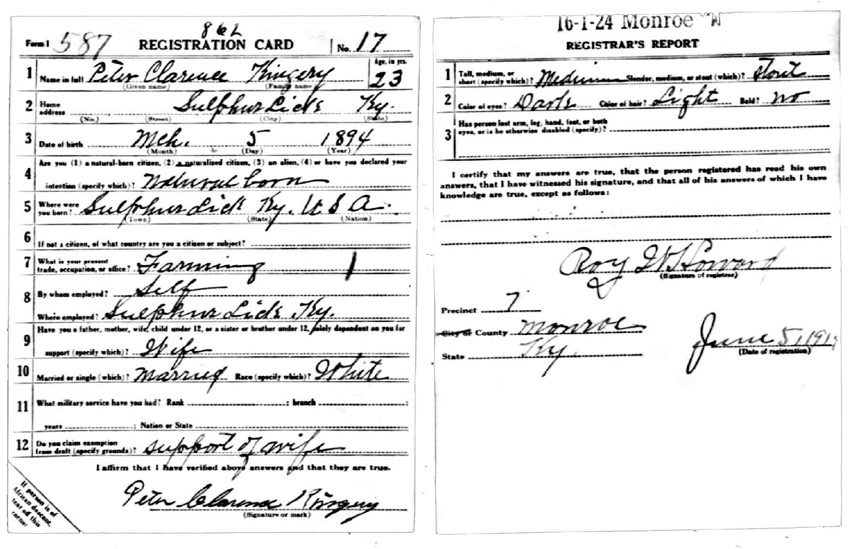 862
Form 1 587 REGISTRATION CARD No. 17
1 Name in full Peter Clarence Kingery Age, in yrs. 23
(Given name) (Family name)
2 Home address Sulphur Lick Ky.
(No.) (Street) (City) (State)
3 Date of birth Mch. 5 1894
(Month) (Day) (Year)
4 Are you (1) a natural-born citizen, (2) a naturalized citizen, (3) an alien, (4) or have you declared your
intention (specify which)? Natural born
5 Where were you born? Sulphur Lick Ky. U S A
(Town) (State) (Nation)
6 If not a citizen, of what country are you a citizen or subject?
7 What is your present trade, occupation, or office? Farming 1
8 By whom employed? Self
Where employed? Sulphur Lick Ky.
9 Have you a father, mother, wife, child under 12, or a sister or brother under 12, solely dependent on you for
support (specify which)? Wife
10 Married or single (which)? Married Race (specify which)? White
11 What military service have you had? Rank ; branch
years ; Nation or State
12 Do you claim exemption from draft (specify grounds)? support of wife
I affirm that I have verified above answers and that they are true.
Peter Clarence Kingery
(Signature or mark)
If person is of
African descent,
tear off this
corner.
16-1-24 Monroe "W"
REGISTRAR'S REPORT
1 Tall, medium, or short (specify which)? Medium Slender, medium, or stout (which)? Stout
2 Color of eyes? Dark Color of hair? Light Bald? No
3 Has person lost arm, leg, hand, foot, or both
eyes, or is he otherwise disabled (specify)?
I certify that my answers are true, that the person registered has read his own
answers, that I have witnessed his signature, and that all of his answers of which I have
knowledge are true, except as follows:
Roy W Howard
(Signature of registrar)
Precinct 7
City or County Monroe
State Ky.
June 5, 1917
(Date of registration)